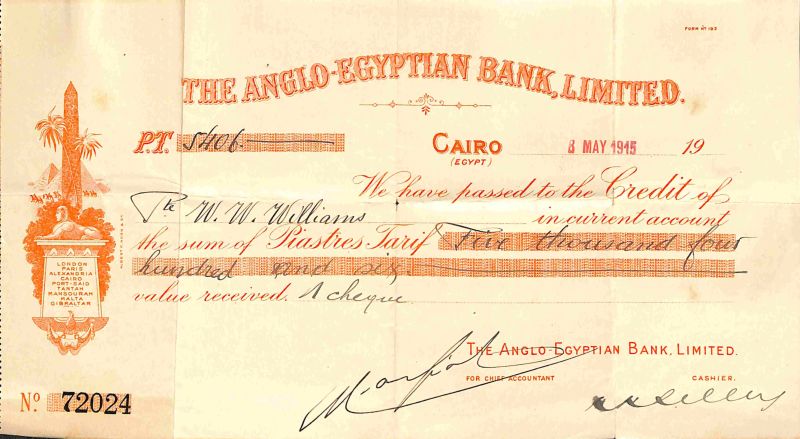 FORM Nº 193
THE ANGLO-EGYPTIAN BANK, LIMITED.
P.T. 5406.
CAIRO
(EGYPT)
8 MAY 1915 19
We have passed to the Credit of
Pte W. W. Williams in current account
the sum of Piastres Tarif Five thousand four
hundred and six
value received. 1 cheque
LONDON
PARIS
ALEXANDRIA
CAIRO
PORT-SAID
TANTAH
MANSOURAH
MALTA
GIBRALTAR
THE ANGLO-EGYPTIAN BANK, LIMITED.
FOR CHIEF ACCOUNTANT CASHIER.
Nº 72024